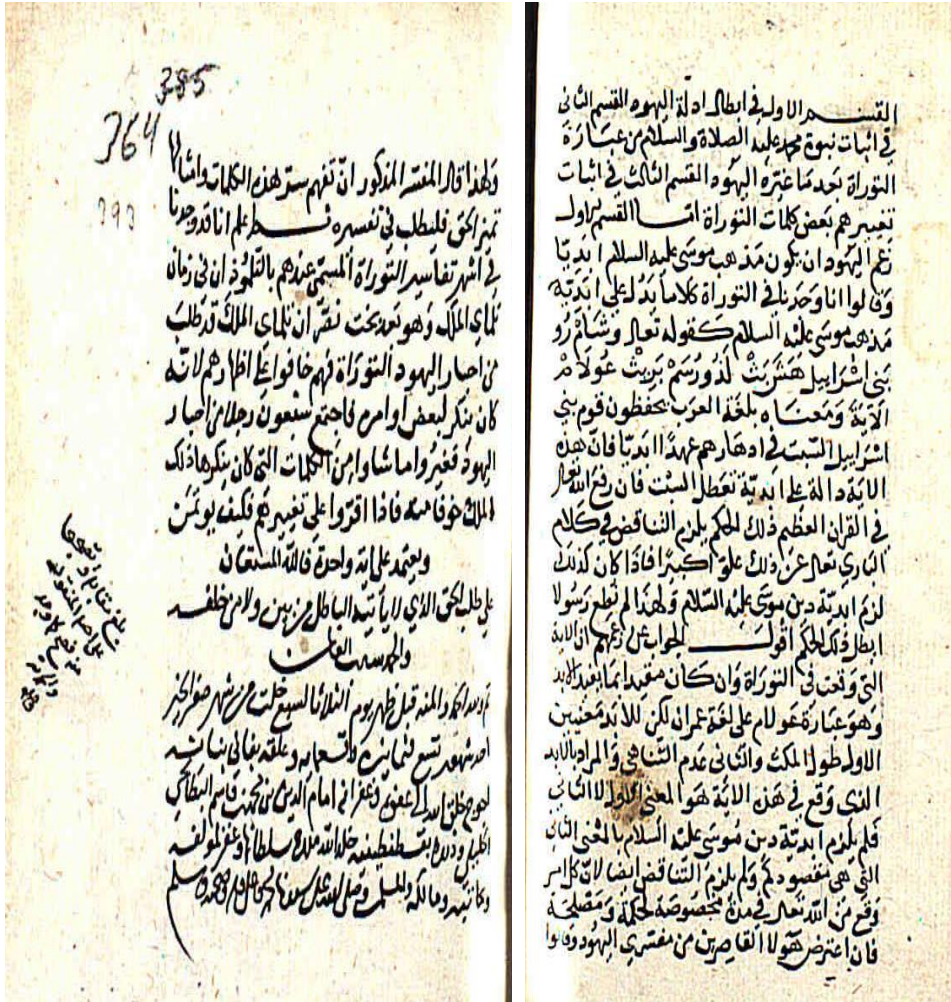 القسم الاول في ابطال ادلة اليهود القسم الثاني
في اثبات نبوة محمد عليه الصلاة والسلام من عبارة
التوراة بعد ما غيره اليهود القسم الثالث في اثبات
تغييرهم بعض كلمات التوراة اما القسم الاول
زعم اليهود ان يكون مذهب موسى عليه السلام ابديا
وقالوا انا وجدنا في التوراة كلاما يدل على ابدية
مذهب موسى عليه السلام كقوله تعالى وشامرو
بني اسراييل هشبث لذورسم بريث عولام
الآية ومعناه بلغة العرب يحفظون قوم بني
اسراييل السبت في ادهارهم عهدا ابديا فان هذه
الاية دالة على ابدية تعطل السبت فان رفع الله تعالى
في القران العظيم ذلك الحكم يلزم التناقض في كلام
الباري تعالى عن ذلك علوا كبيرا فاذا كان كذلك
لزم ابدية دين موسى عليه السلام ولهذا لم نطع رسولا
ابطل ذلك الحكم اقول الجواب عن زعمهم ان الاية
التي وقعت في التوراة وان كان مقيدا بما يفيد الابد
وهو عبارة عولام على لغة عمران لكن للابد معنيين
الاول طول المكث والثاني عدم التناهي والمراد بالابد
الذي وقع في هذه الاية هو المعنى الاول لا الثاني
فلم يلزم ابدية دين موسى عليه السلام بالمعنى الثاني
التي هي مقصودكم ولم يلزم التناقض ايضا لان كل امر
وقع من الله تعالى في مدة مخصوصة لحكمة ومصلحة
فان اعترض هولا القاصرين من مفسري اليهود وقالوا
385
364
393
ولهذا قال المفسر المذكور ان تفهم ستر هذه الكلمات وامثالها
تميز الحق فليطلب في تفسيره ثم علم انا قد وجدنا
في اشهر تفاسير التوراة المسمى عندهم بالتلموذ ان في زمان
تلماي الملك وهو بعد بخت نصر ان تلماي الملك قد طلب
من احبار اليهود التوراة فهم خافوا على اظهارهم لانه
كان ينكر لبعض اوامره فاجتمع سبعون رجلا من احبار
اليهود فغيروا ما شاوا من الكلمات التي كان ينكرها ذلك
الملك خوفا منه فاذا اقروا على تغييرهم فكيف يوتمن
ويعتمد على اية واحدة فالله المستعان
على طلب الحق الذي لا ياتيه الباطل من بين ولا من خلفه
والحمد لله
ولله الحمد والمنه قبل ظهر يوم الثلاثا لسبع خلت من شهر صفر الخير
احد شهور تسع ثمانين
احوج خلق الله الى عفوه وغفرانه امام الدين بن قاسم